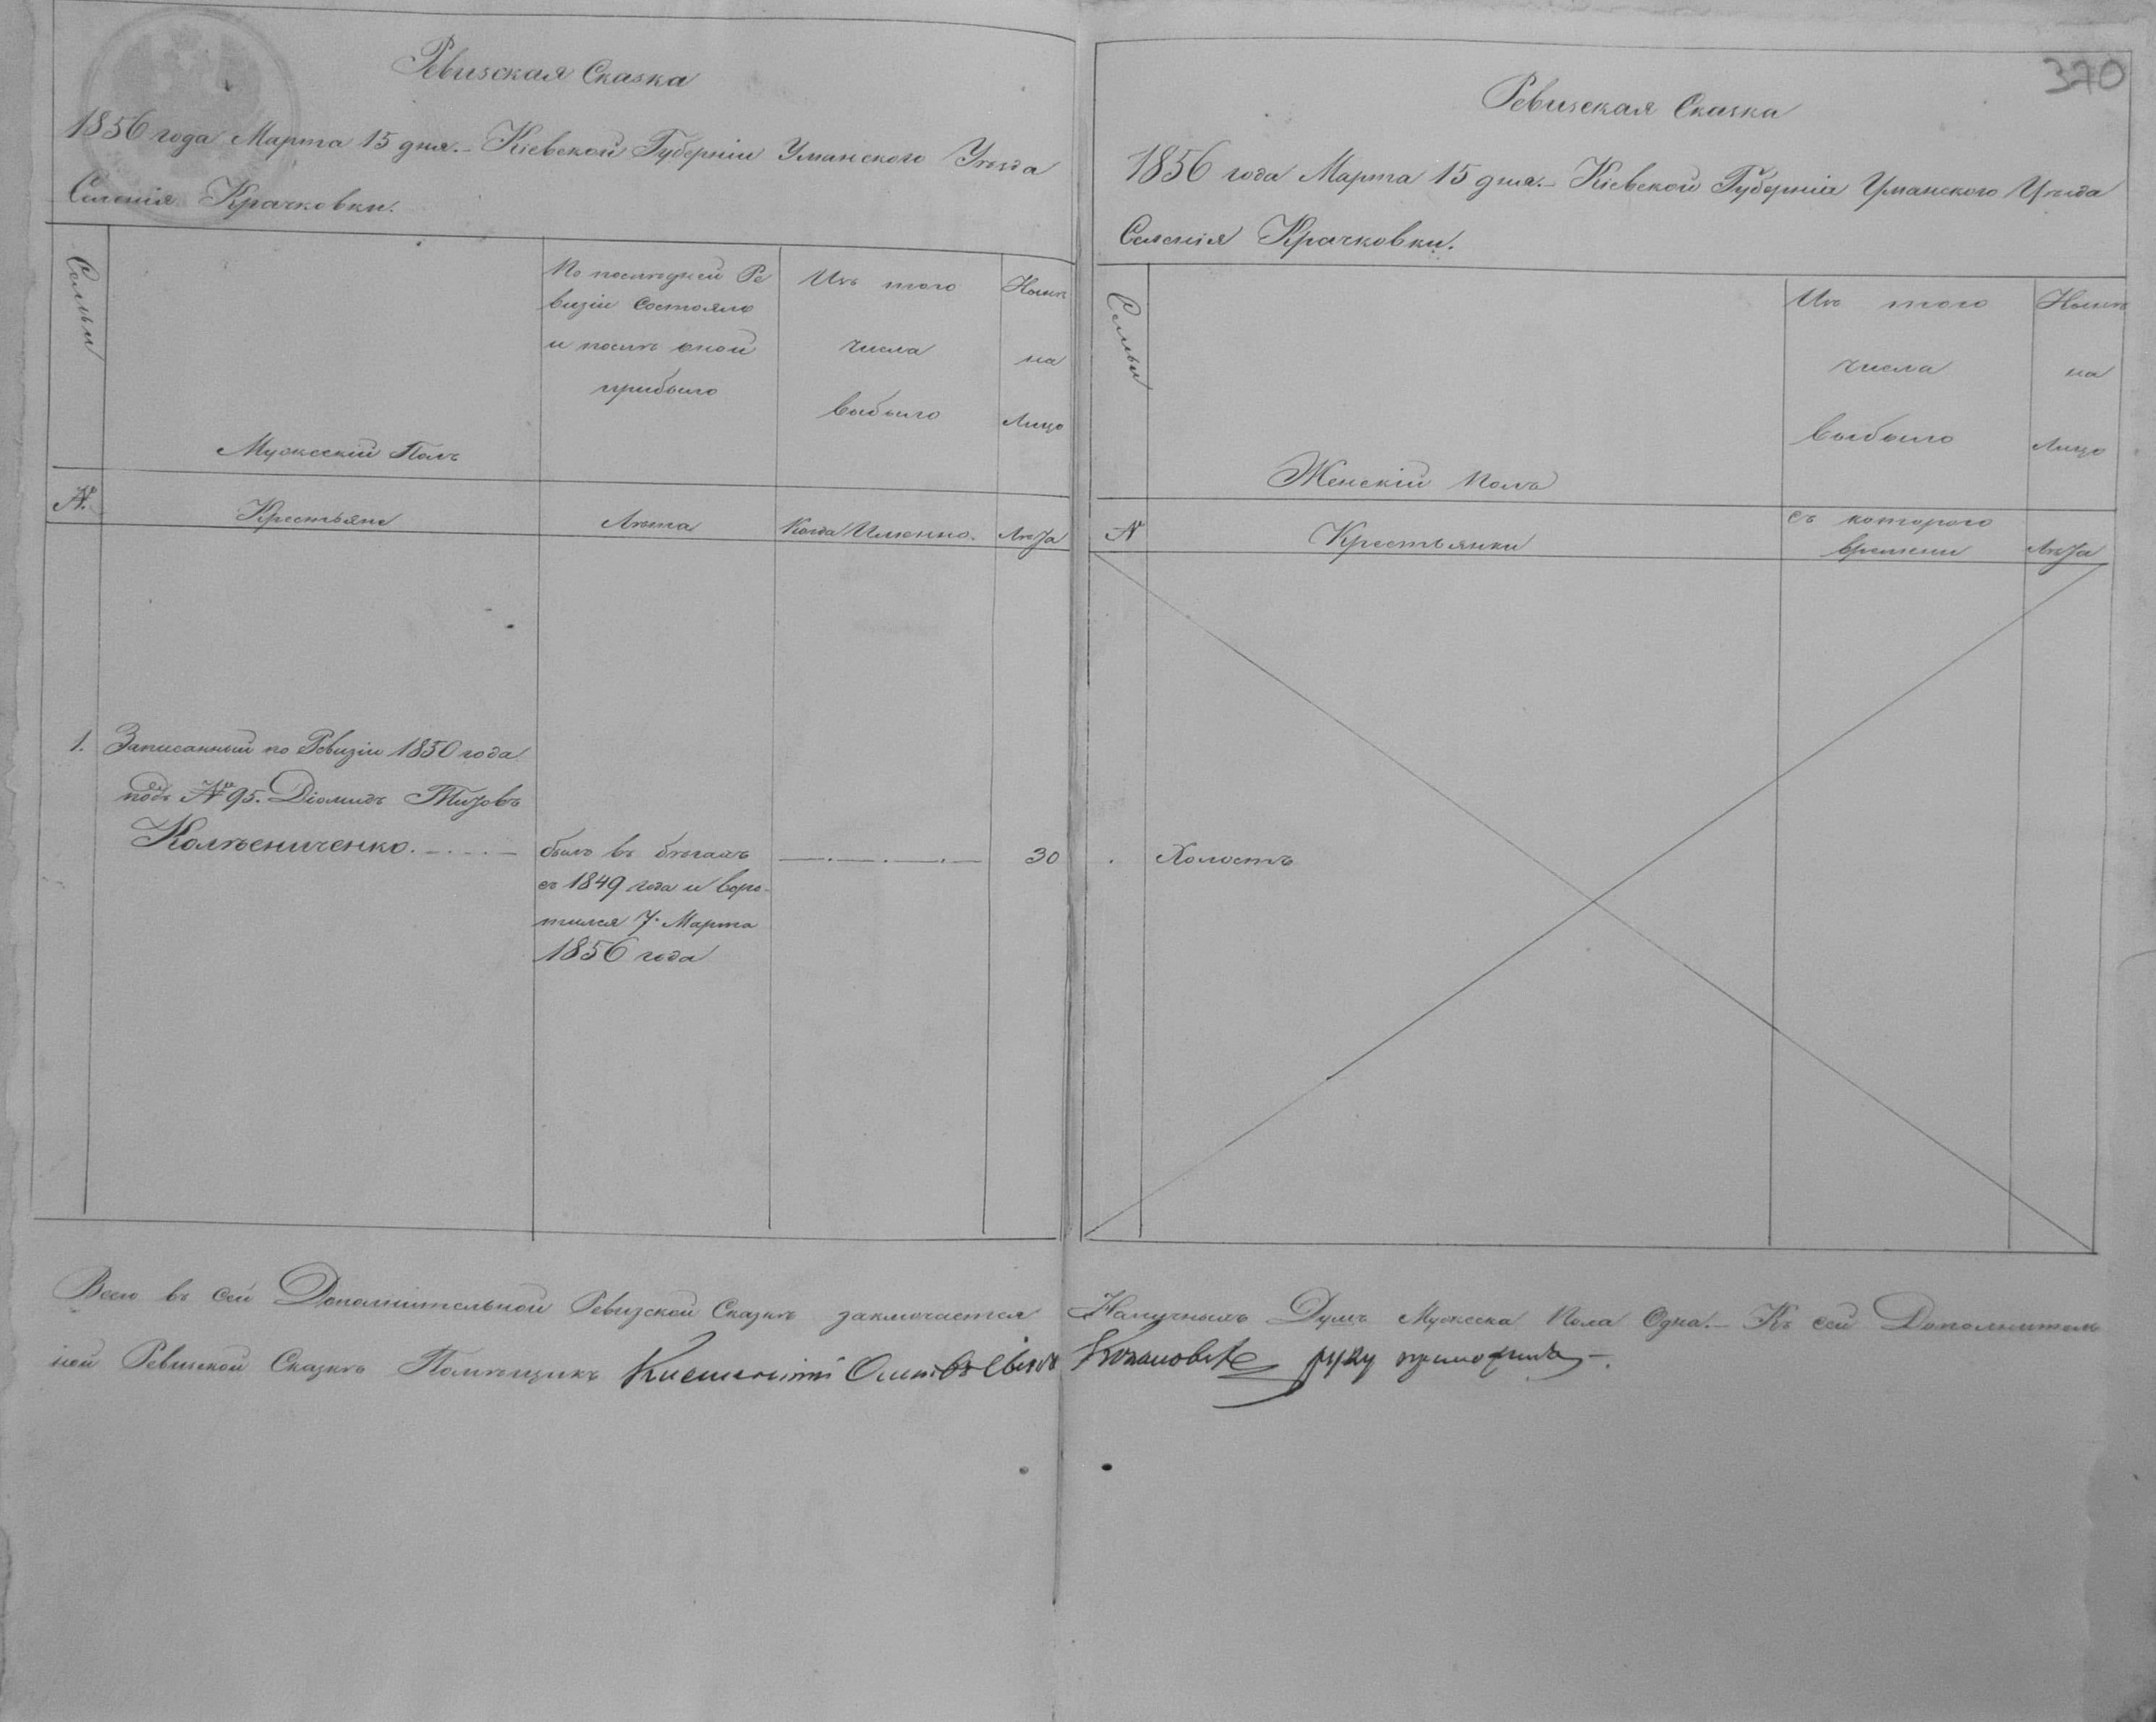 Ревизская Сказка
1856 года Марта 15 дня. Кіевской Губерніи Уманского Уѣзда
Селенія Крачковки.
Семьи
Мужескій Полъ
По послѣдней Ре
визіи состояло
и послѣ оной
прибыло
Изъ того
числа
выбыло
Нынѣ
на
Лицо
№
Крестьяне
Лѣта
Когда Именно.
Лѣта
1. Записанный по Ревизіи 1850 года
подъ № 95. Діомидъ Титовъ
Колѣсниченко.
былъ въ бѣгахъ
съ 1849 года и воро-
тился 7. Марта
1856 года
30
370
Ревизская Сказка
1856 года Марта 15 дня. Кіевской Губерніи Уманского Уѣзда
Селенія Крачковки.
Семьи
Женскій Полъ
Изъ того
числа
выбыло
Нынѣ
на
Лицо
№
Крестьянки
съ которого
времени
Лѣта
Холостъ
Всего въ сей Дополнительной Ревизской Сказкѣ заключается Наличныхъ Душъ Мужеска Пола Одна. Къ сей Дополнитель
ной Ревизской Сказкѣ Помѣщикъ руку приложилъ